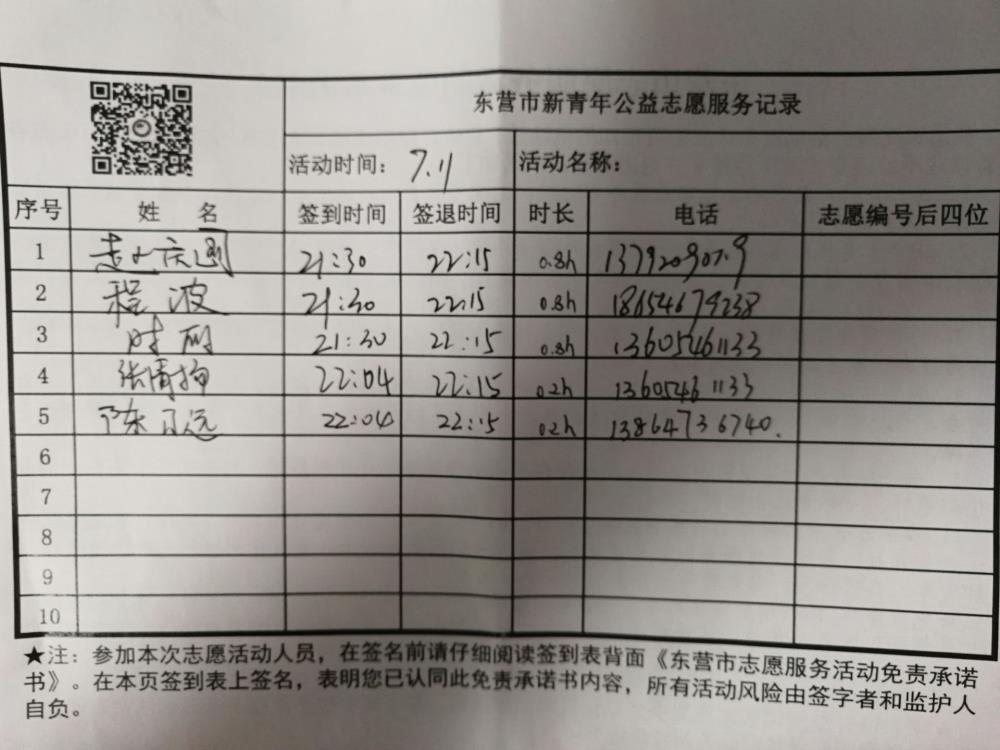 东营市新青年公益志愿服务记录
活动时间: 7.11 活动名称:
序号 姓 名 签到时间 签退时间 时长 电话 志愿编号后四位
1 21:30 22:15 0.8h
2 程波 21:30 22:15 0.8h 18654679238
3 21:30 22:15 0.8h 13605461133
4 22:04 22:15 0.2h 13605461133
5 22:04 22:15 0.2h 13864736740.
6
7
8
9
10
★注: 参加本次志愿活动人员, 在签名前请仔细阅读签到表背面《东营市志愿服务活动免责承诺
书》。在本页签到表上签名, 表明您已认同此免责承诺书内容, 所有活动风险由签字者和监护人
自负。